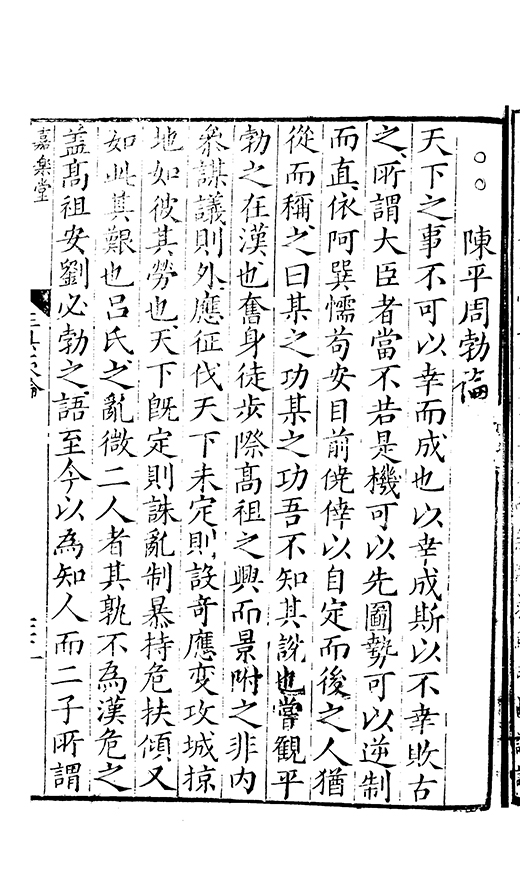 ○○陳平周勃論
天下之事不可以幸而成也以幸成斯以不幸敗古
之所謂大臣者當不若是機可以先圖勢可以逆制
而直依阿巽懦苟安目前僥倖以自定而後之人猶
從而稱之曰某之功某之功吾不知其說也嘗觀平
勃之在漢也奮身徒步際髙祖之興而景附之非内
叅謀議則外應征伐天下未定則設奇應變攻城掠
地如彼其勞也天下旣定則誅亂制暴持危扶傾又
如此其艱也吕氏之亂微二人者其孰不為漢危之
葢髙祖安劉必勃之語至今以為知人而二子所謂
嘉樂堂